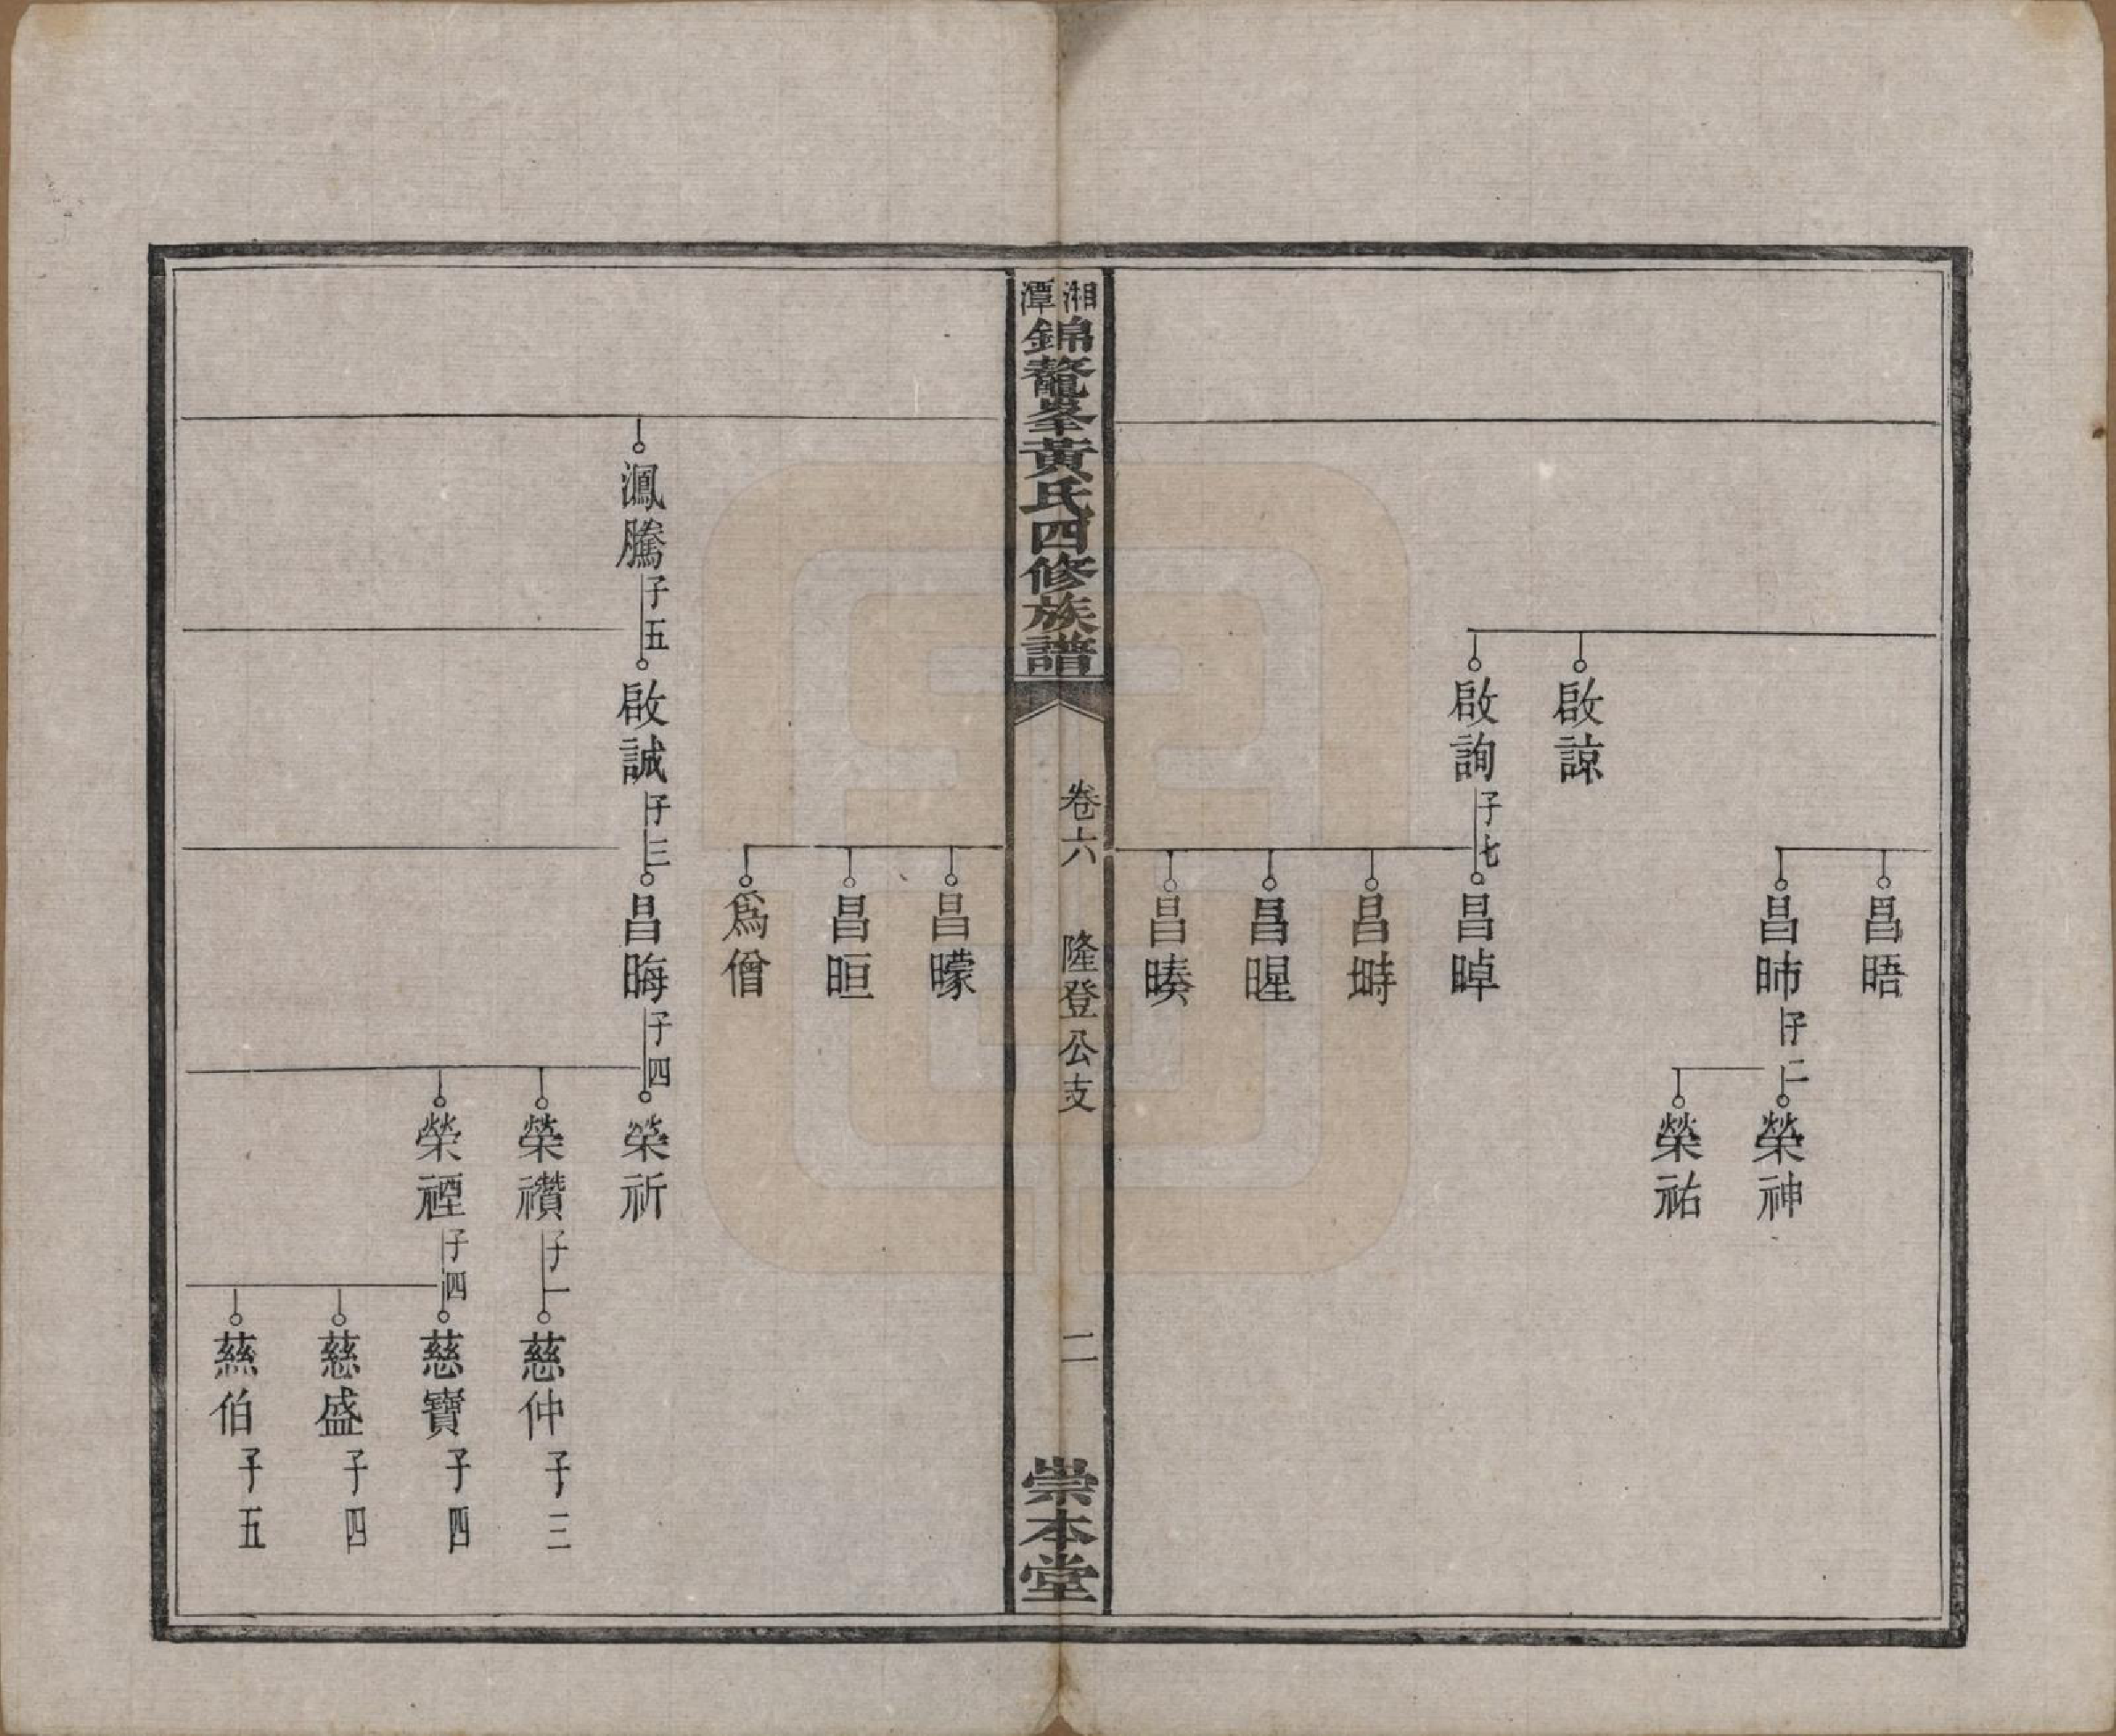 昌晤
昌昁子二
榮神
榮祐
啟諒
啟詢子七
昌晫
昌塒
昌暒
昌㬢
湘潭錦鼇峯黃氏四修族譜
卷六
隆登公支
二
崇本堂
昌曚
昌晅
爲僧
鳳騰子五
啟誠子三
昌晦子四
榮祈
榮禶子一
慈仲子三
榮禋子四
慈寶子四
慈盛子四
慈伯子五